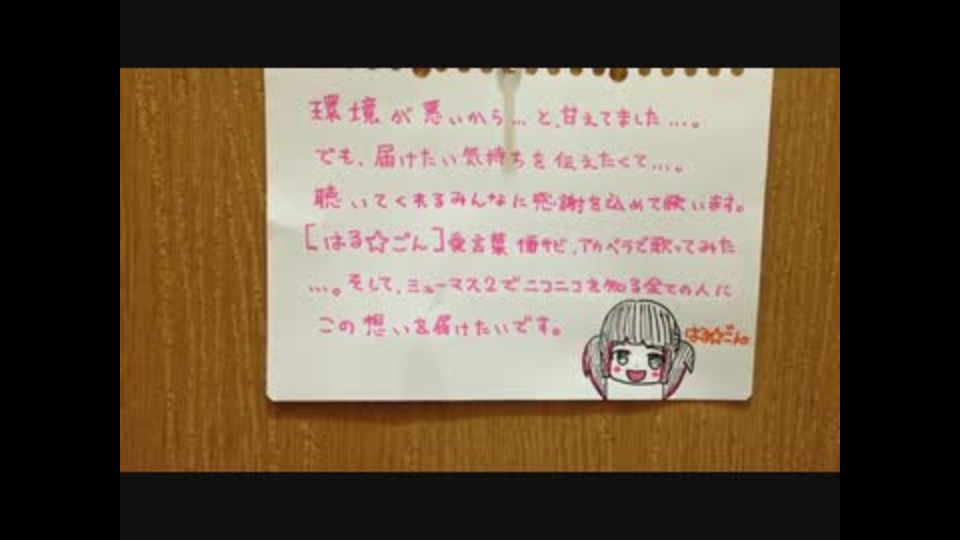 環境が悪いから…と、甘えてました…。
でも、届けたい気持ちを伝えたくて…。
聴いてくれるみんなに感謝を込めて歌います。
[はる☆ごん]愛言葉 1番サビ、アカペラで歌ってみた
…。そして、ミューマス2でニコニコを知る全ての人に
この想いを届けたいです。
はる☆ごん。